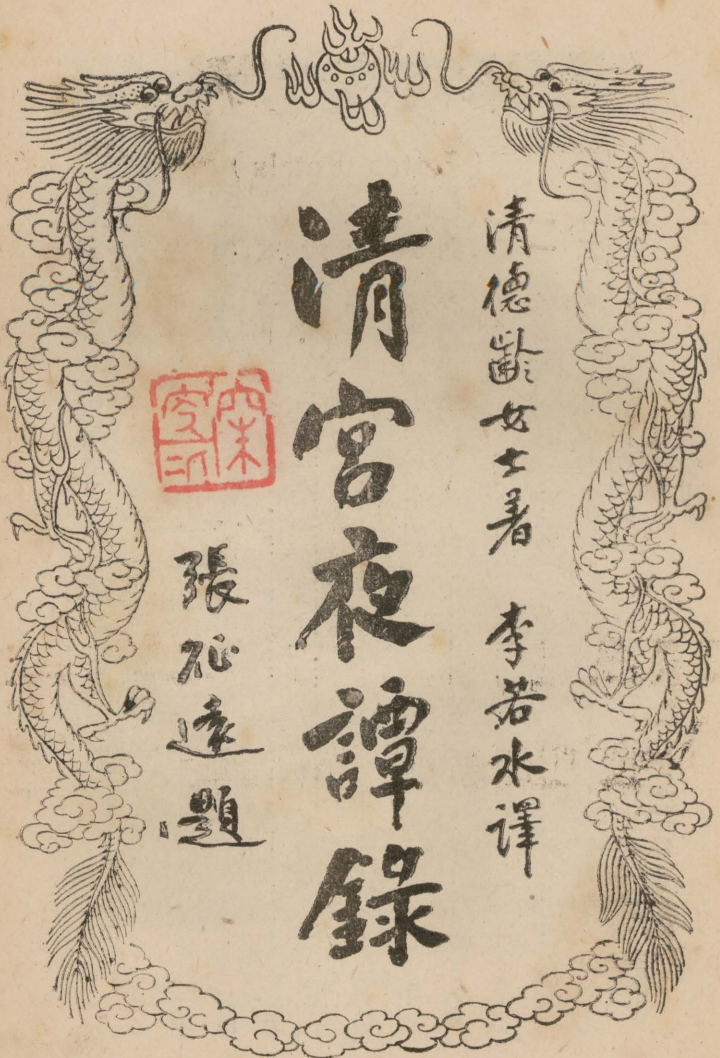 清德齡女士著 李若水譯
清宮夜譚錄
張征遠題